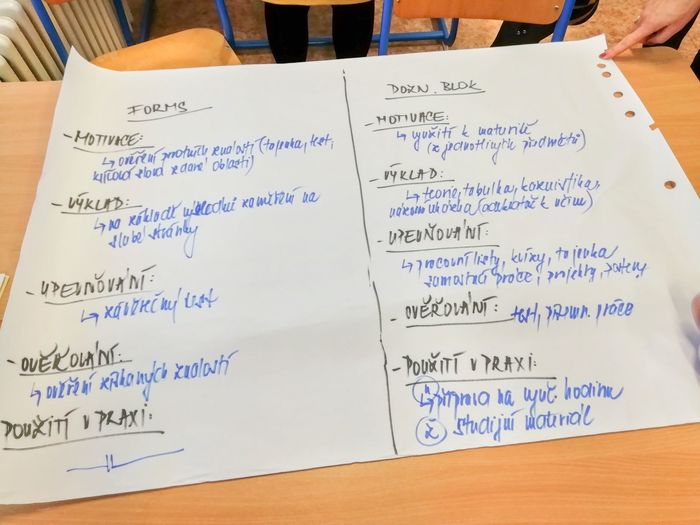 FORMS
- MOTIVACE:
↳ ověření prvotních znalostí (tajenka, test,
klíčová slova z dané oblasti)
- VÝKLAD:
↳ na základě výsledků zaměření na
slabé stránky
- UPEVŇOVÁNÍ:
↳ závěrečný test
- OVĚŘOVÁNÍ:
↳ ověření získaných znalostí
POUŽITÍ V PRAXI:
DOZN. BLOK
- MOTIVACE:
↳ využití k maturitě
(z jednotlivých předmětů)
- VÝKLAD:
↳ teorie, tabulka, kazuistika,
- UPEVŇOVÁNÍ:
↳ pracovní listy, kvízy, tajenka
samostat. práce, projekty,
- OVĚŘOVÁNÍ: test, práce
- POUŽITÍ V PRAXI:
1. ↳ příprava na vyuč. hodinu
2. studijní materiál